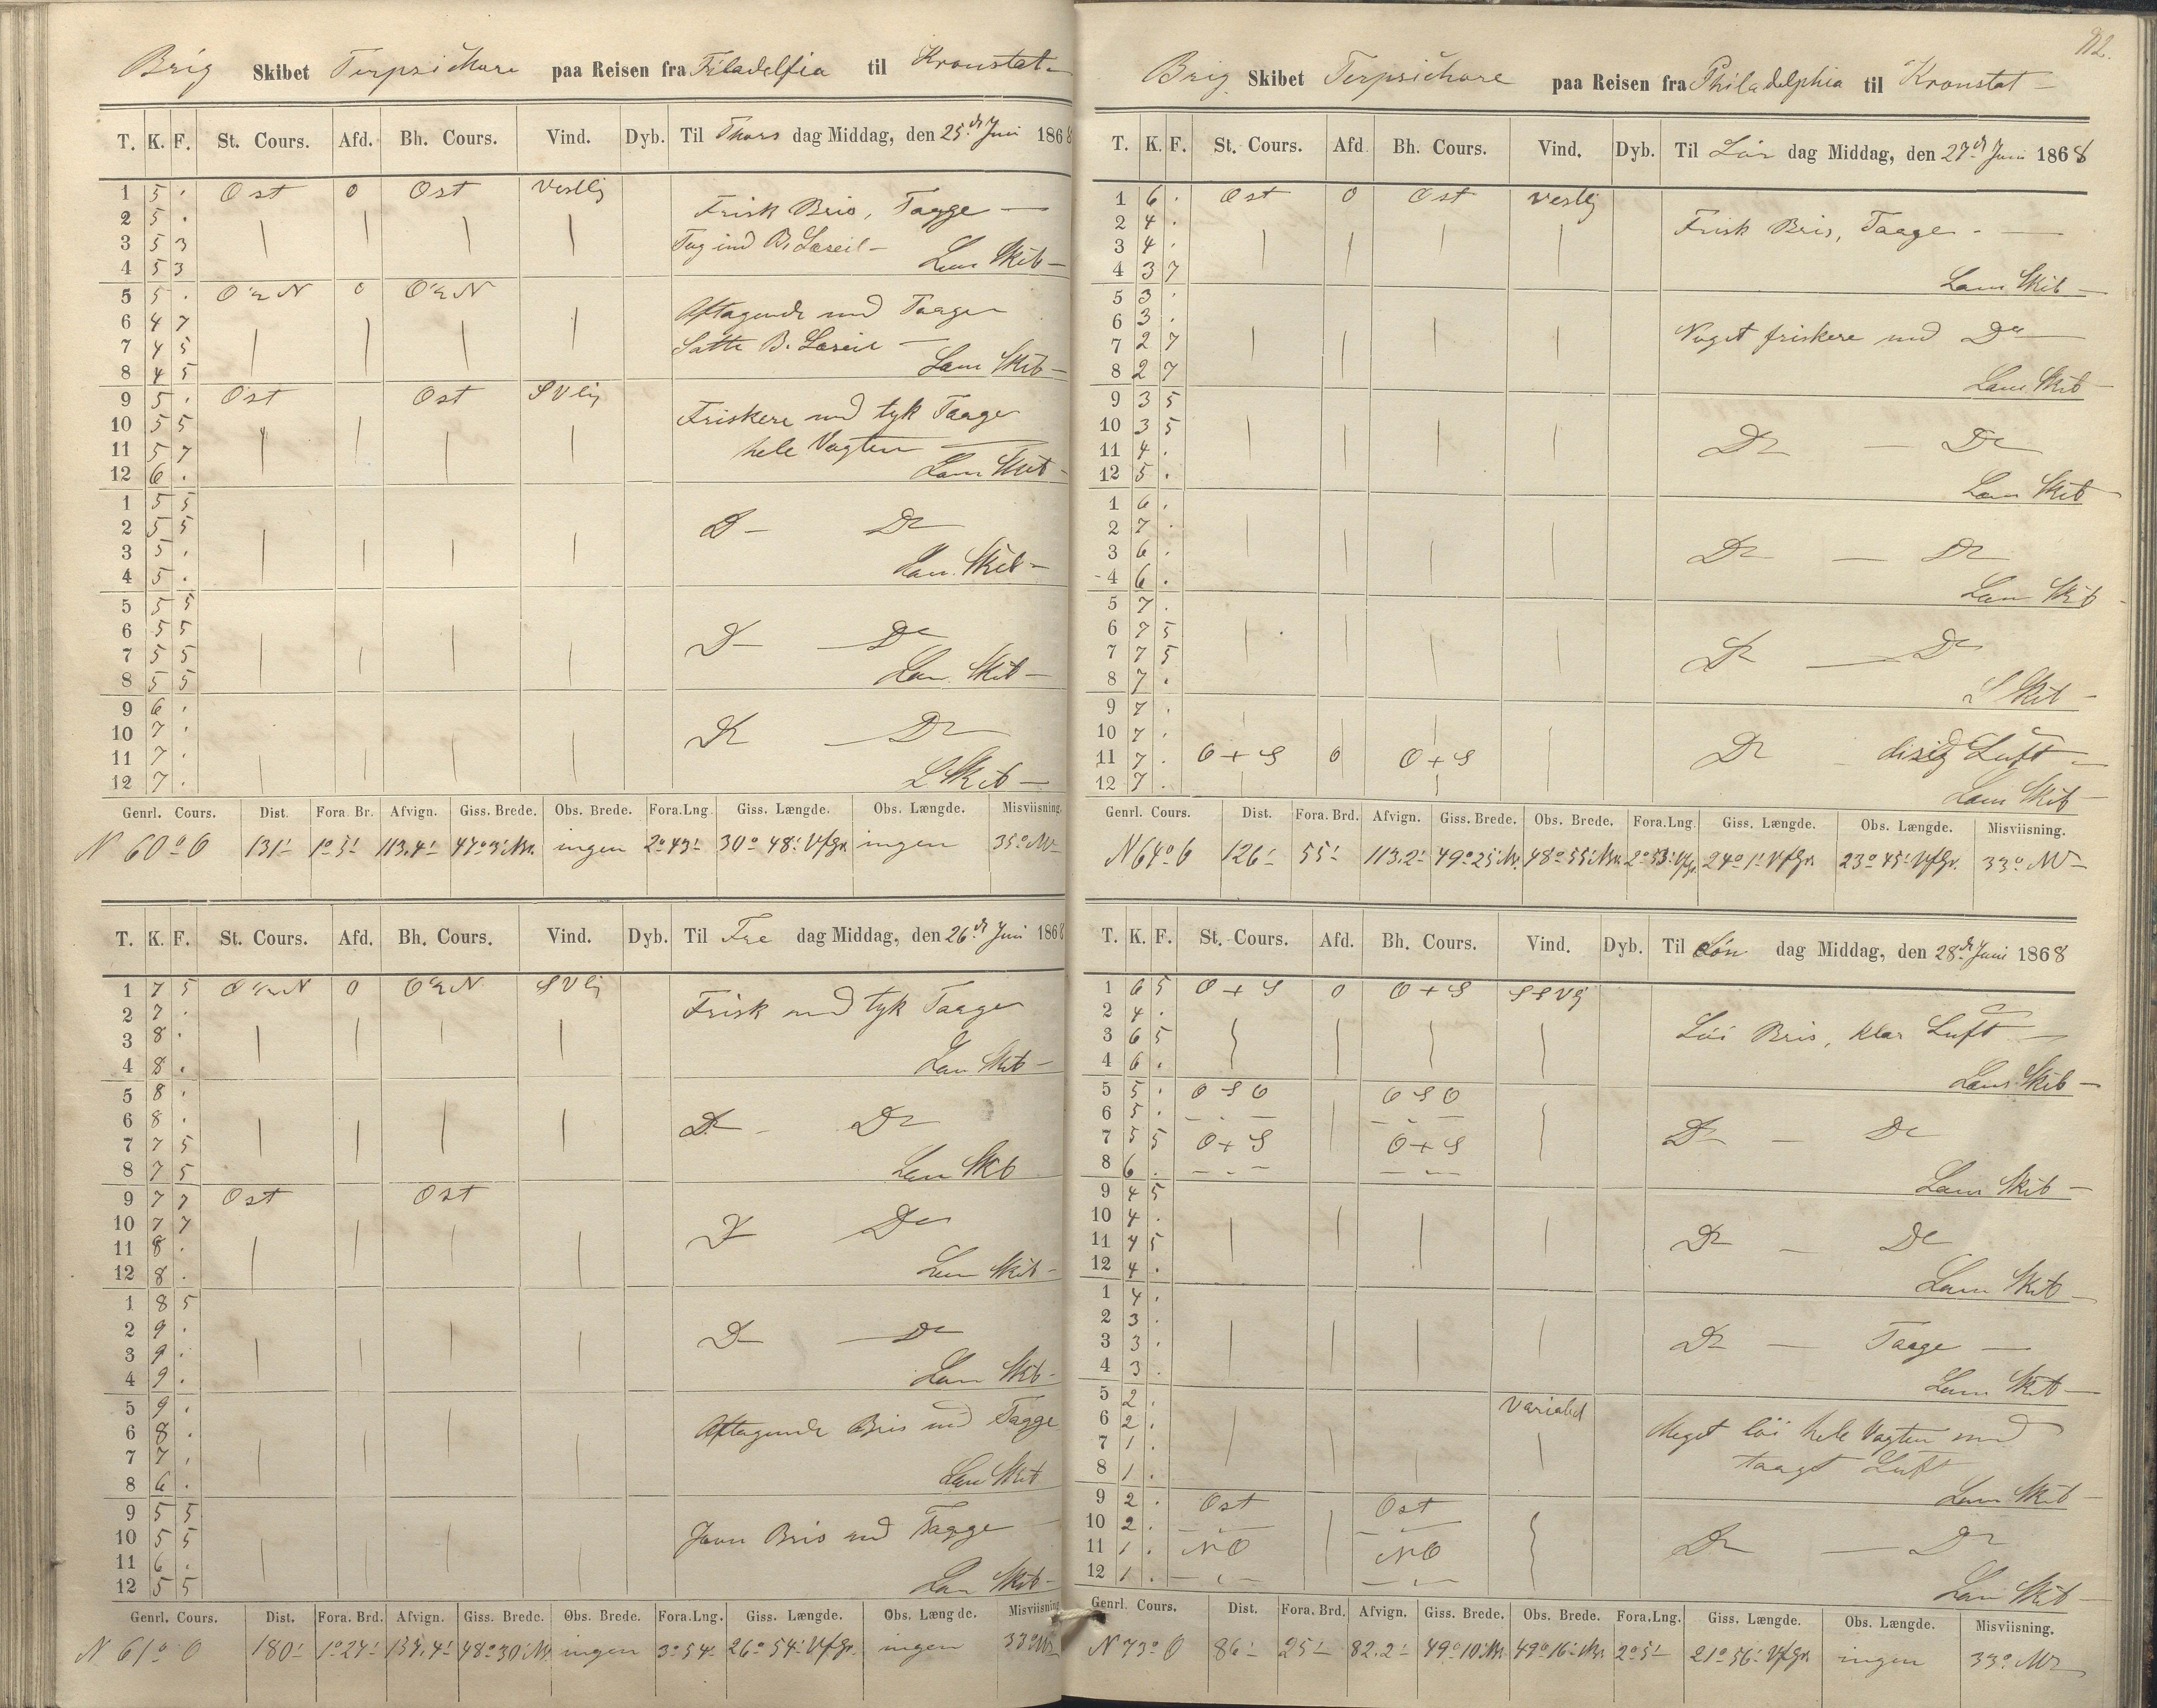 Brig Skibet Terpsichore paa Reisen fra Filadelfia til Kronstat
T. K. F. St. Cours. Afd. Bh. Cours. Vind. Dyb. Til Thors dag Middag, den 25de Juni 1868
1 5 . Ost 0 Ost Vestlig
2 5 . Frisk Bris, Taage
3 5 3 Tog ind B. Læseil
4 5 3 Lens Skib
5 5 . O t N 0 O t N
6 4 7 Aftagende med Taage
7 4 5 Satte B. Læseil
8 4 5 Lens Skib
9 5 . Ost Ost SVlig
10 5 5 Friskere med tyk Taage
11 5 7 hele Vagten
12 6 . Lens Skib
1 5 5
2 5 5 Do Do
3 5 .
4 5 . Lens Skib
5 5 5
6 5 5 Do Do
7 5 5
8 5 5 Lens Skib
9 6 .
10 7 . Do Do
11 7 .
12 7 . L Skib
Genrl. Cours. Dist. Fora. Br. Afvign. Giss. Brede. Obs. Brede. Fora.Lng. Giss. Længde. Obs. Længde. Misviisning.
N 60° O 131' 1° 5' 113.4' 47° 3' Nr. ingen 2° 43' 30° 48' VfGr. ingen 35° NV
T. K. F. St. Cours. Afd. Bh. Cours. Vind. Dyb. Til Fre dag Middag, den 26de Juni 1868
1 7 5 O t N 0 O t N SVlig
2 7 . Frisk med tyk Taage
3 8 .
4 8 . Lens Skib
5 8 .
6 8 . Do Do
7 7 5
8 7 5 Lens Skib
9 7 7 Ost Ost
10 7 7 Do Do
11 8 .
12 8 . Lens Skib
1 8 5
2 9 . Do Do
3 9 .
4 9 . Lens Skib
5 9 .
6 8 . Aftagende Bris med Taage
7 7 .
8 6 . Lens Skib
9 5 5
10 5 5 Jevn Bris med Taage
11 6 .
12 5 5 Lens Skib
Genrl. Cours. Dist. Fora. Brd. Afvign. Giss. Brede. Obs. Brede. Fora.Lng. Giss. Længde. Obs. Længde. Misviisning
N 61° O 180' 1° 27' 157.4' 48° 30' Nr. ingen 3° 54' 26° 54' VfGr. ingen 33° NV
112.
Brig Skibet Terpsichore paa Reisen fra Philadelphia til Kronstat
T. K. F. St. Cours. Afd. Bh. Cours. Vind. Dyb. Til Lör dag Middag, den 27de Juni 1868
1 6 . Ost 0 Ost Vestlig
2 4 . Frisk Bris, Taage
3 4 .
4 3 7 Lens Skib
5 3 .
6 3 . Noget friskere med Do
7 2 7
8 2 7 Lens Skib
9 3 5
10 3 5 Do Do
11 4 .
12 5 . Lens Skib
1 6 .
2 7 . Do Do
3 6 .
4 6 . Lens Skib
5 7 .
6 7 5 Do Do
7 7 5
8 7 . L Skib
9 7 .
10 7 .
11 7 . O + S 0 O + S Do disig Luft
12 7 . Lens Skib
Genrl. Cours. Dist. Fora. Brd. Afvign. Giss. Brede. Obs. Brede. Fora.Lng. Giss. Længde. Obs. Længde. Misviisning.
N 64° O 126' 55' 113.2' 49° 25' Nr. 48° 55' Nr. 2° 53' VfGr. 24° 1' VfGr. 23° 45' VfGr. 33° NV
T. K. F. St. Cours. Afd. Bh. Cours. Vind. Dyb. Til Sön dag Middag, den 28de Juni 1868
1 6 5 O + S 0 O + S SSVlg
2 4 .
3 6 5 Löi Bris, klar Luft
4 6 . Lens Skib
5 5 . O S O O S O
6 5 . Do Do
7 5 5 O + S O + S
8 6 . Lens Skib
9 4 5
10 4 . Do Do
11 4 5
12 4 . Lens Skib
1 4 .
2 3 .
3 3 . Do Taage
4 3 . Lens Skib
5 2 . Variabel
6 2 . Meget löi hele Vagten med
7 1 . taaget Luft
8 1 . Lens Skib
9 2 . Ost Ost
10 2 . Do Do
11 1 . NO NO
12 1 . Lens Skib
Genrl. Cours. Dist. Fora. Brd. Afvign. Giss. Brede. Obs. Brede. Fora.Lng. Giss. Længde. Obs. Længde. Misviisning.
N 73° O 86' 25' 82.2' 49° 10' Nr. 49° 16' Nr. 2° 5' 21° 56' VfGr. ingen 33° NV